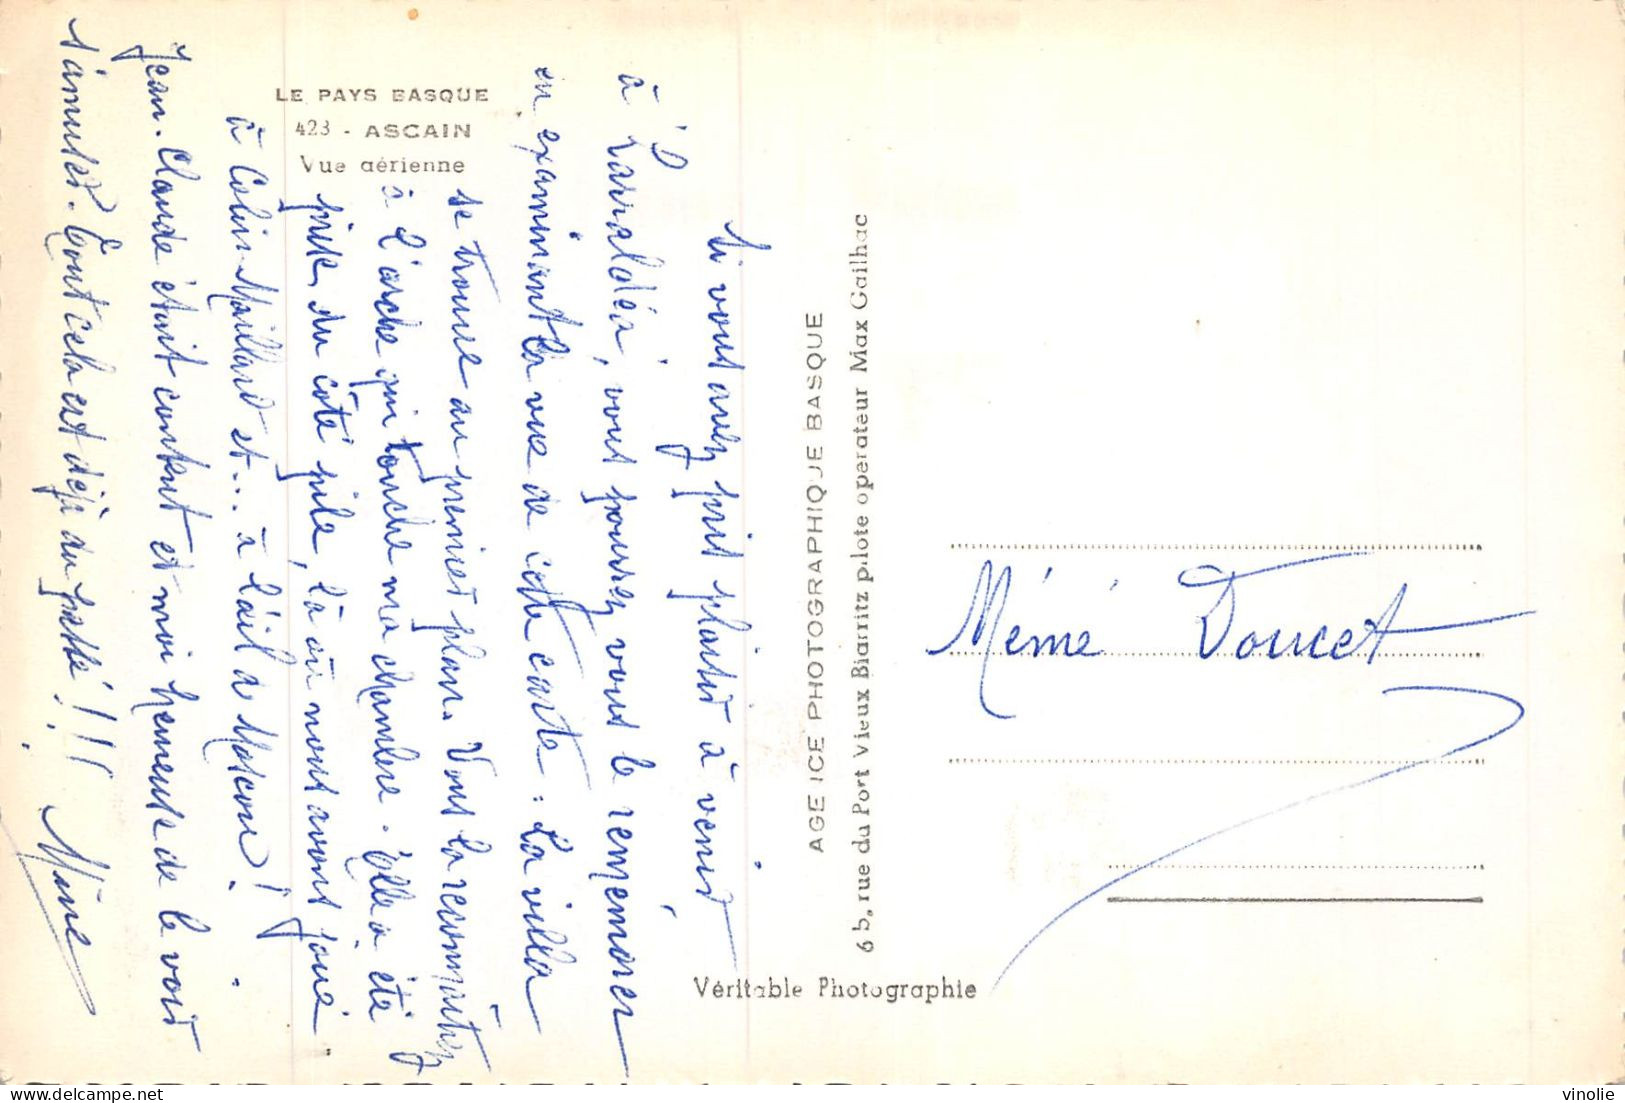 LE PAYS BASQUE
423 - ASCAIN
Vue aérienne
Si vous avez pris plaisir à venir
à Larraldéa, vous pourrez vous le remémorer
en examinant la vue de cette carte : la villa
se trouve au premier plan. Vous la reconnaîtrez
à l'arche qui touche ma chambre. Elle a été
prise du côté pile, là où nous avons joué
à Colin-Maillard et... à l'œil de Moscou !
Jean-Claude était content et moi heureuse de le voir
s'amuser. Tout cela est déjà du passé !!!
Mine
AGE ICE PHOTOGRAPHIQUE BASQUE
6 b, rue du Port Vieux Biarritz pilote operateur Max Gailhac
Véritable Photographie
Mémé Doucet
vinolie